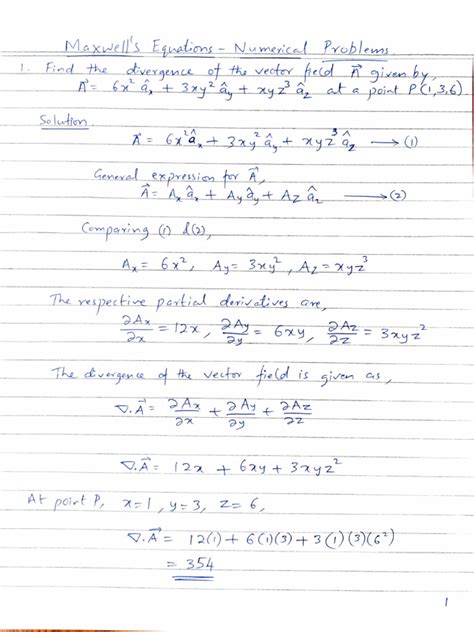 Maxwell's Equations - Numerical Problems.
1. Find the divergence of the vector field A⃗ given by,
A⃗ = 6x² âₓ + 3xy² â_y + xyz³ â_z at a point P(1,3,6).
Solution
A⃗ = 6x² âₓ + 3xy² â_y + xyz³ â_z ⟶ (1)
General expression for A⃗,
A⃗ = Aₓ âₓ + A_y â_y + A_z â_z ⟶ (2)
Comparing (1) & (2),
Aₓ = 6x², A_y = 3xy², A_z = xyz³
The respective partial derivatives are,
∂Aₓ/∂x = 12x, ∂A_y/∂y = 6xy, ∂A_z/∂z = 3xyz²
The divergence of the vector field is given as,
∇.A⃗ = ∂Aₓ/∂x + ∂A_y/∂y + ∂A_z/∂z
∇.A⃗ = 12x + 6xy + 3xyz²
At point P, x=1, y=3, z=6,
∇.A⃗ = 12(1) + 6(1)(3) + 3(1)(3)(6²)
= 354
1